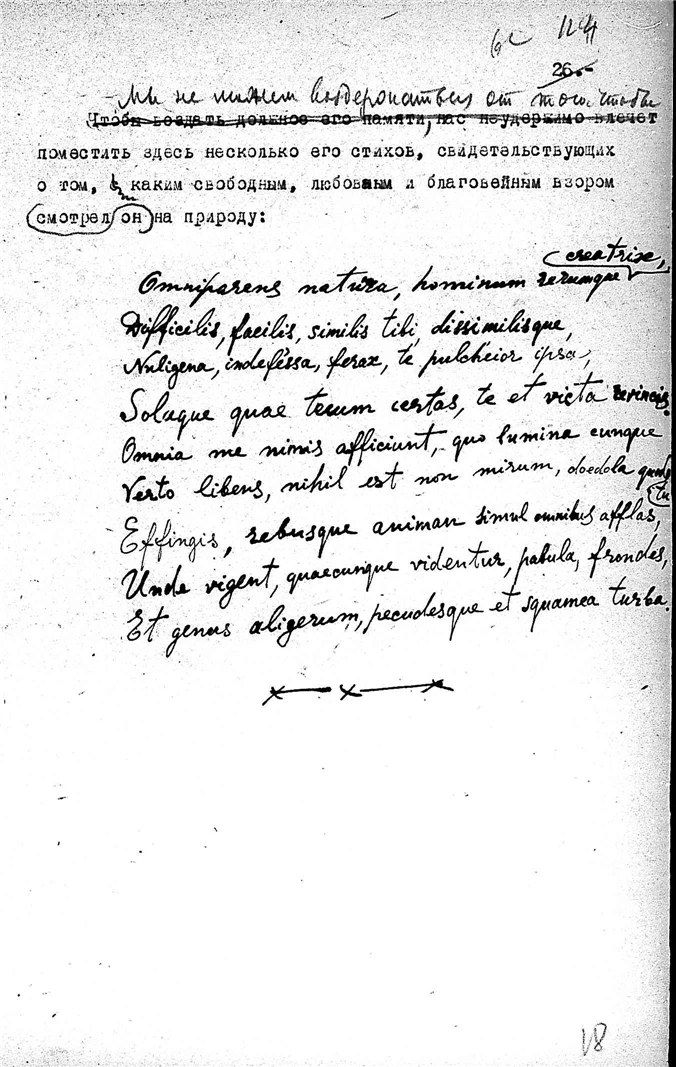 124
26.-
Мы не можем воздержаться от того, чтобы
Чтобы воздать должное его памяти, нас неудержимо влечет
поместить здесь несколько его стихов, свидетельствующих
о том, каким свободным, любовным и благовейным взором
смотрел он на природу:
creatrix,
Omniparens natura, hominum rerumque
Difficilis, facilis, similis tibi, dissimilisque,
Nuligena, indefessa, ferax, te pulcheior ipsa,
Solaque quae tecum certas, te et victa revincis.
Omnia me nimis afficiunt, quo lumina cunque
Verto libens, nihil est non mirum, doedola quod
tu
Effingis, rebusque animan simul omnibus afflas,
Unde vigent, quaecunque videntur, pabula, frondes,
Et genus aligerum, pecudesque et squamea turba.
18